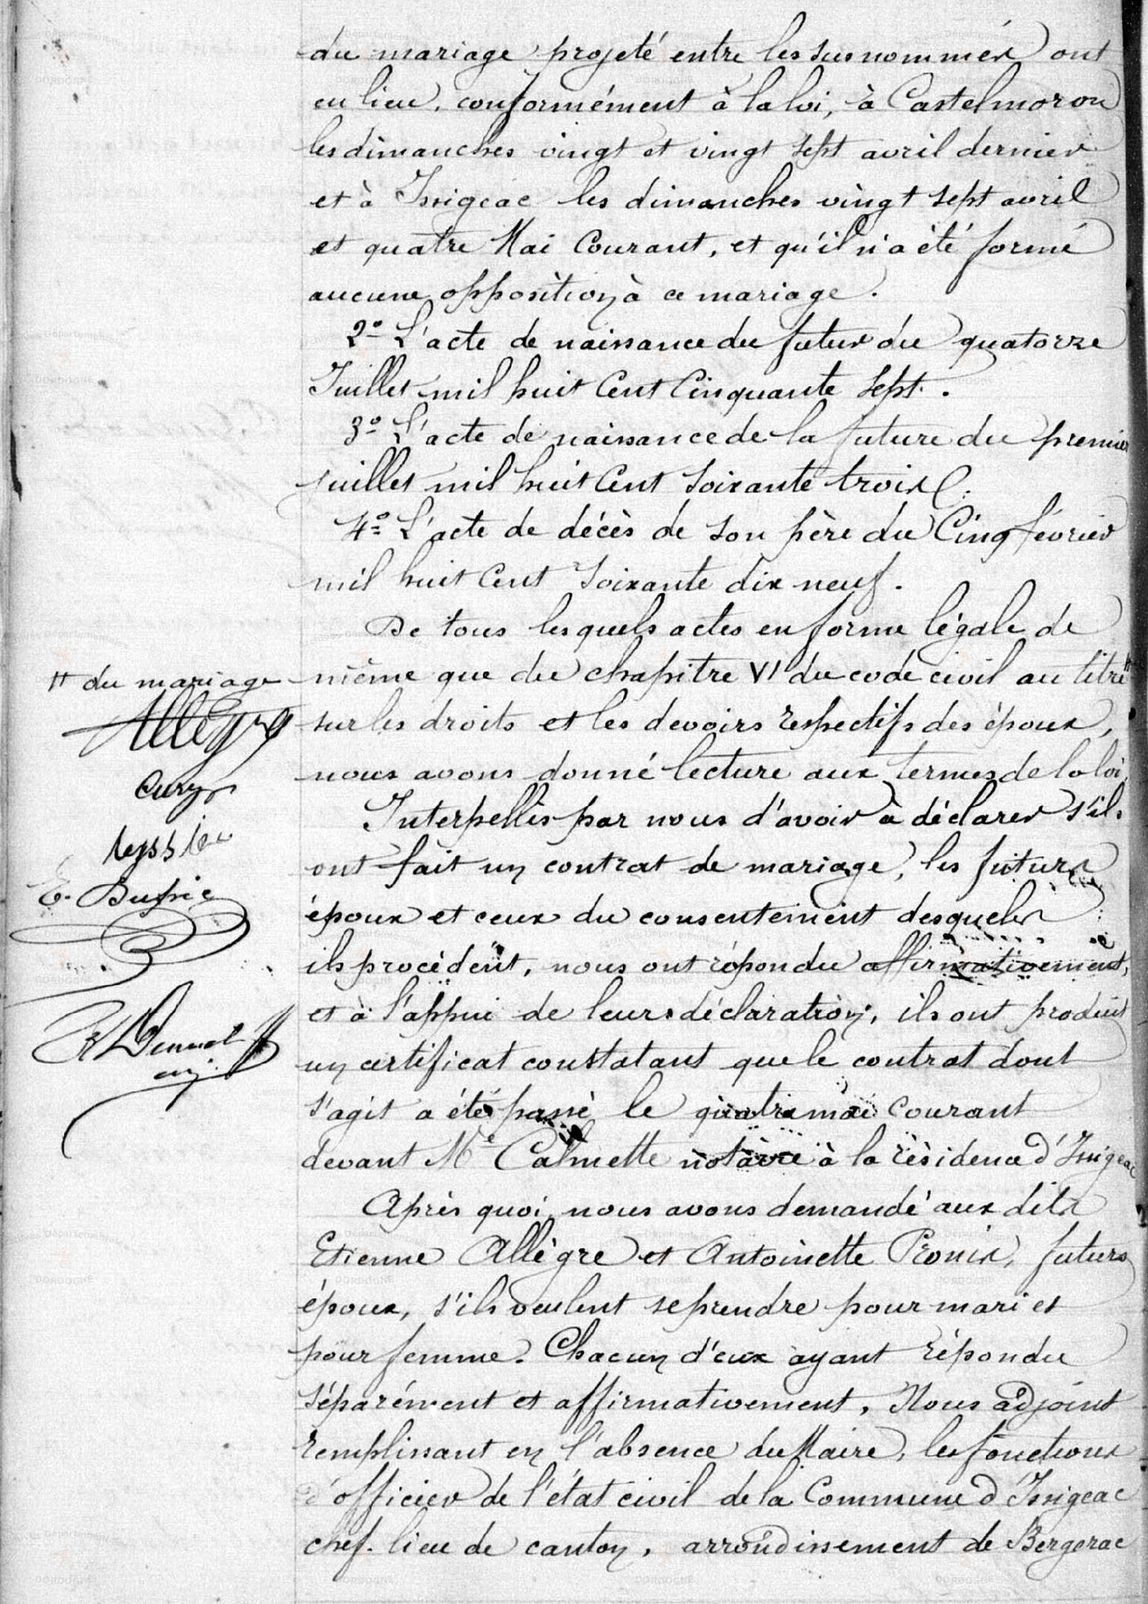 du mariage projeté entre les susnommés ont
eu lieu, conformément à la loi, à Castelmoron
les dimanches vingt et vingt sept avril dernier
et à Issigeac les dimanches vingt sept avril
et quatre Mai Courant, et qu'il n'a été formé
aucune opposition à ce mariage.
2º L'acte de naissance du futur du quatorze
Juillet mil huit Cent Cinquante Sept.
3º L'acte de naissance de la future du premier
juillet mil huit Cent Soixante trois.
4º L'acte de décès de son père du Cinq février
mil huit Cent Soixante dix neuf.
De tous lesquels actes en forme légale de
même que du chapitre VI du code civil au titre #
sur les droits et les devoirs respectifs des époux,
nous avons donné lecture aux termes de la loi.
Interpellés par nous d'avoir à déclarer s'ils
ont fait un contrat de mariage, les futurs
époux et ceux du consentement desquels
ils procèdent, nous ont répondu affirmativement,
et à l'appui de leurs déclaration, ils ont produit
un certificat constatant que le contrat dont
s'agit a été passé le quatre mai Courant
devant Me Calmette notaire à la résidence d'Issigeac
Après quoi, nous avons demandé aux dits
Etienne Allègre et Antoinette Pronis, futurs
époux, s'ils veulent se prendre pour mari et
pour femme. Chacun d'eux ayant répondu
séparément et affirmativement, Nous adjoint
remplissant en l'absence du Maire, les fonctions
d'officier de l'état civil de la Commune d'Issigeac
chef-lieu de canton, arrondissement de Bergerac
# du mariage
Allègre
E. Duprie
adj.